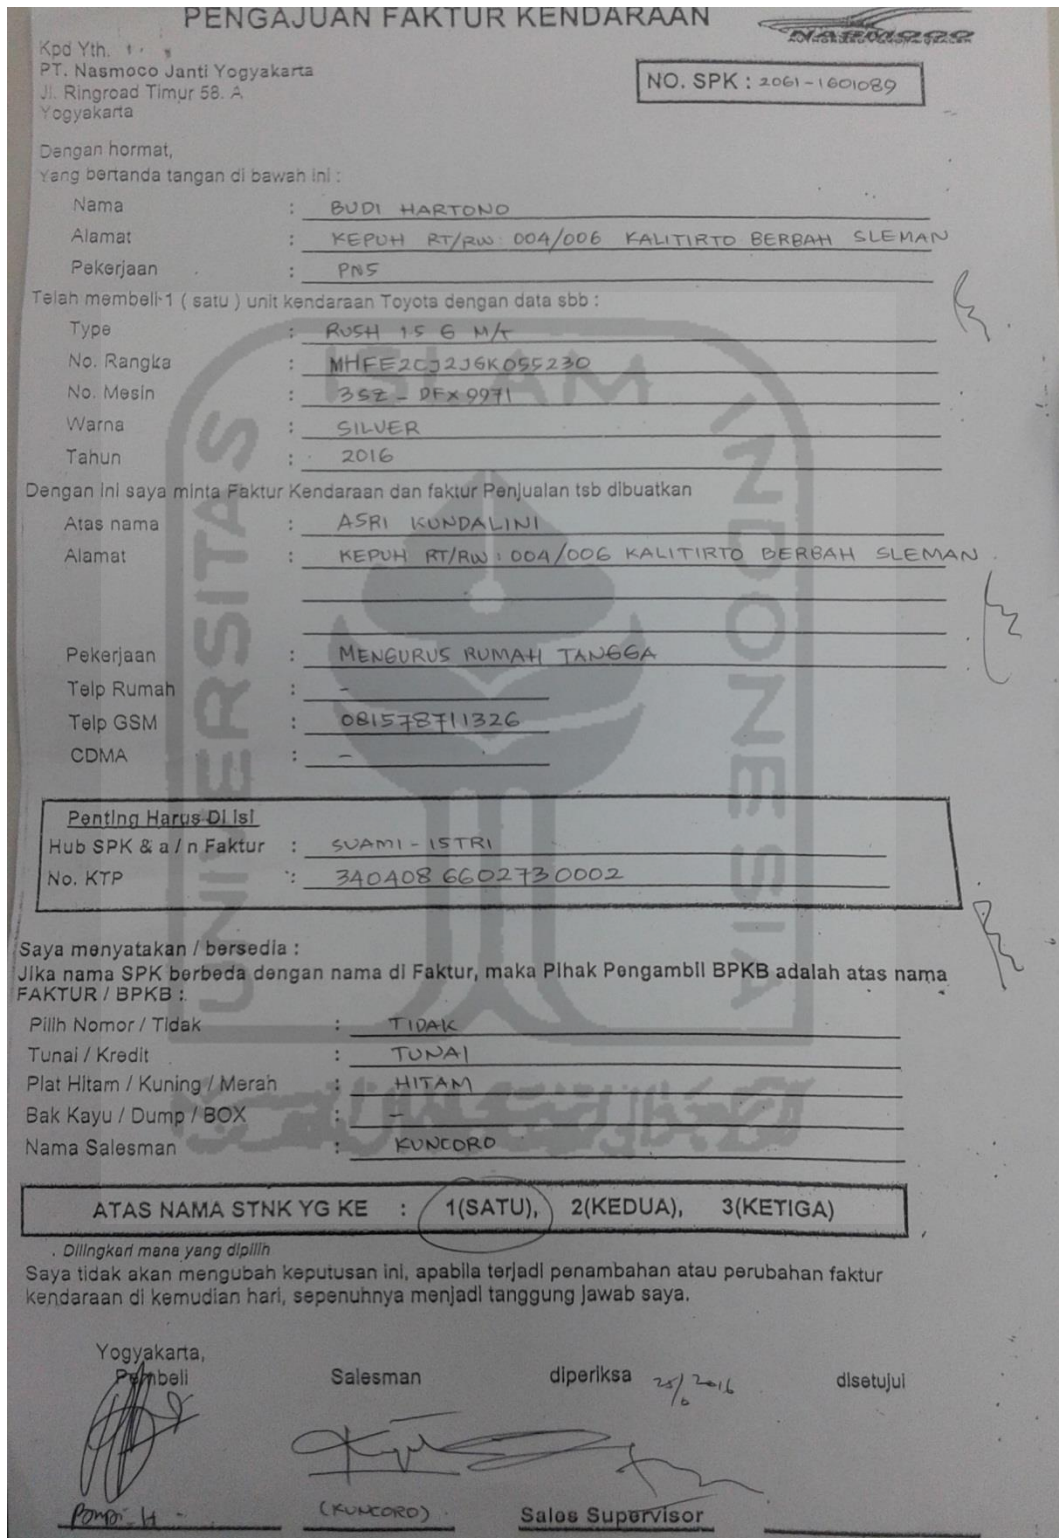 PENGAJUAN FAKTUR KENDARAAN
NASMOCO
Kpd Yth.
PT. Nasmoco Janti Yogyakarta
Jl. Ringroad Timur 58. A
Yogyakarta
NO. SPK : 2061-1601089
Dengan hormat,
Yang bertanda tangan di bawah ini :
Nama : BUDI HARTONO
Alamat : KEPUH RT/RW: 004/006 KALITIRTO BERBAH SLEMAN
Pekerjaan : PNS
Telah membeli 1 ( satu ) unit kendaraan Toyota dengan data sbb :
Type : RUSH 1.5 G M/T
No. Rangka : MHFE2CJ2JGK055230
No. Mesin : 3SZ - DFX9971
Warna : SILVER
Tahun : 2016
Dengan ini saya minta Faktur Kendaraan dan faktur Penjualan tsb dibuatkan
Atas nama : ASRI KUNDALINI
Alamat : KEPUH RT/RW: 004/006 KALITIRTO BERBAH SLEMAN
Pekerjaan : MENGURUS RUMAH TANGGA
Telp Rumah : -
Telp GSM : 081578711326
CDMA : -
Penting Harus Di Isi
Hub SPK & a / n Faktur : SUAMI - ISTRI
No. KTP : 340408 660273 0002
Saya menyatakan / bersedia :
Jika nama SPK berbeda dengan nama di Faktur, maka Pihak Pengambil BPKB adalah atas nama
FAKTUR / BPKB :
Pilih Nomor / Tidak : TIDAK
Tunai / Kredit : TUNAI
Plat Hitam / Kuning / Merah : HITAM
Bak Kayu / Dump / BOX : -
Nama Salesman : KUNCORO
ATAS NAMA STNK YG KE : 1(SATU), 2(KEDUA), 3(KETIGA)
. Dilingkari mana yang dipilih
Saya tidak akan mengubah keputusan ini, apabila terjadi penambahan atau perubahan faktur
kendaraan di kemudian hari, sepenuhnya menjadi tanggung jawab saya.
Yogyakarta,
Pembeli Salesman diperiksa 25/6 2016 disetujui
(KUNCORO) Sales Supervisor
UNIVERSITAS ISLAM INDONESIA